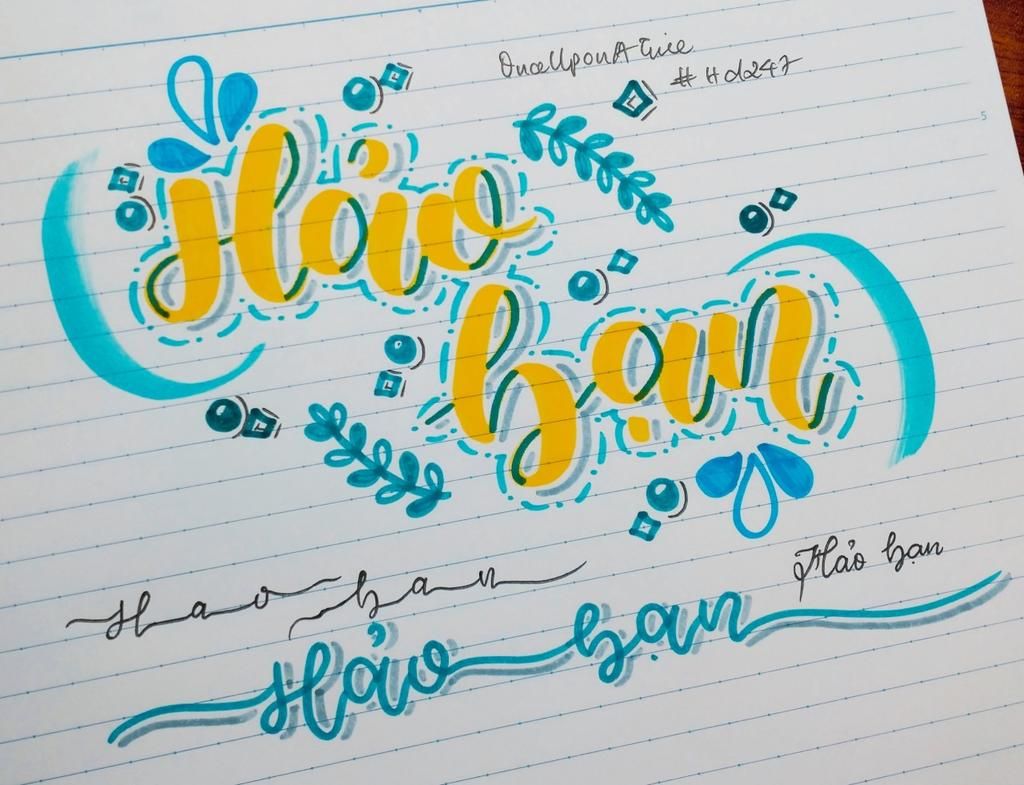 OnceUponATime
#Hd247
Hảo
bạn
5
Hao han
Hảo bạn
Hảo bạn